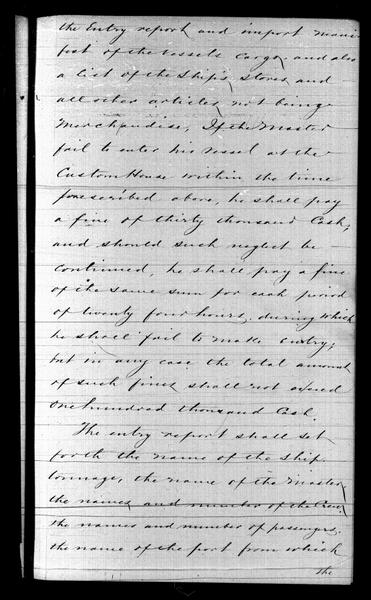 the Entry report and import mani-
fest of the vessels cargo and also
a list of the ship's stores and
all other articles not being
Merchandise, If the Master
fail to enter his vessel at the
Custom House within the time
prescribed above, he shall pay
a fine of thirty thousand Cash,
and should such neglect be
continued, he shall pay a fine
of the same sum for each period
of twenty four hours, during which
he shall fail to make entry;
but in any case the total amount
of such fines shall not exceed
one hundred thousand Cash.
The entry report shall set
forth the name of the ship
tonnage, the name of the Master
the names and number of the Crew.
the names and number of passengers,
the name of the port from which
the